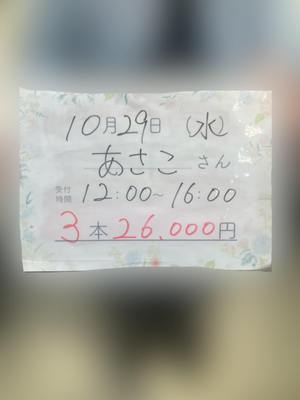 10月29日 (水)
あさこ さん
受付時間 12:00〜16:00
3本 26,000円